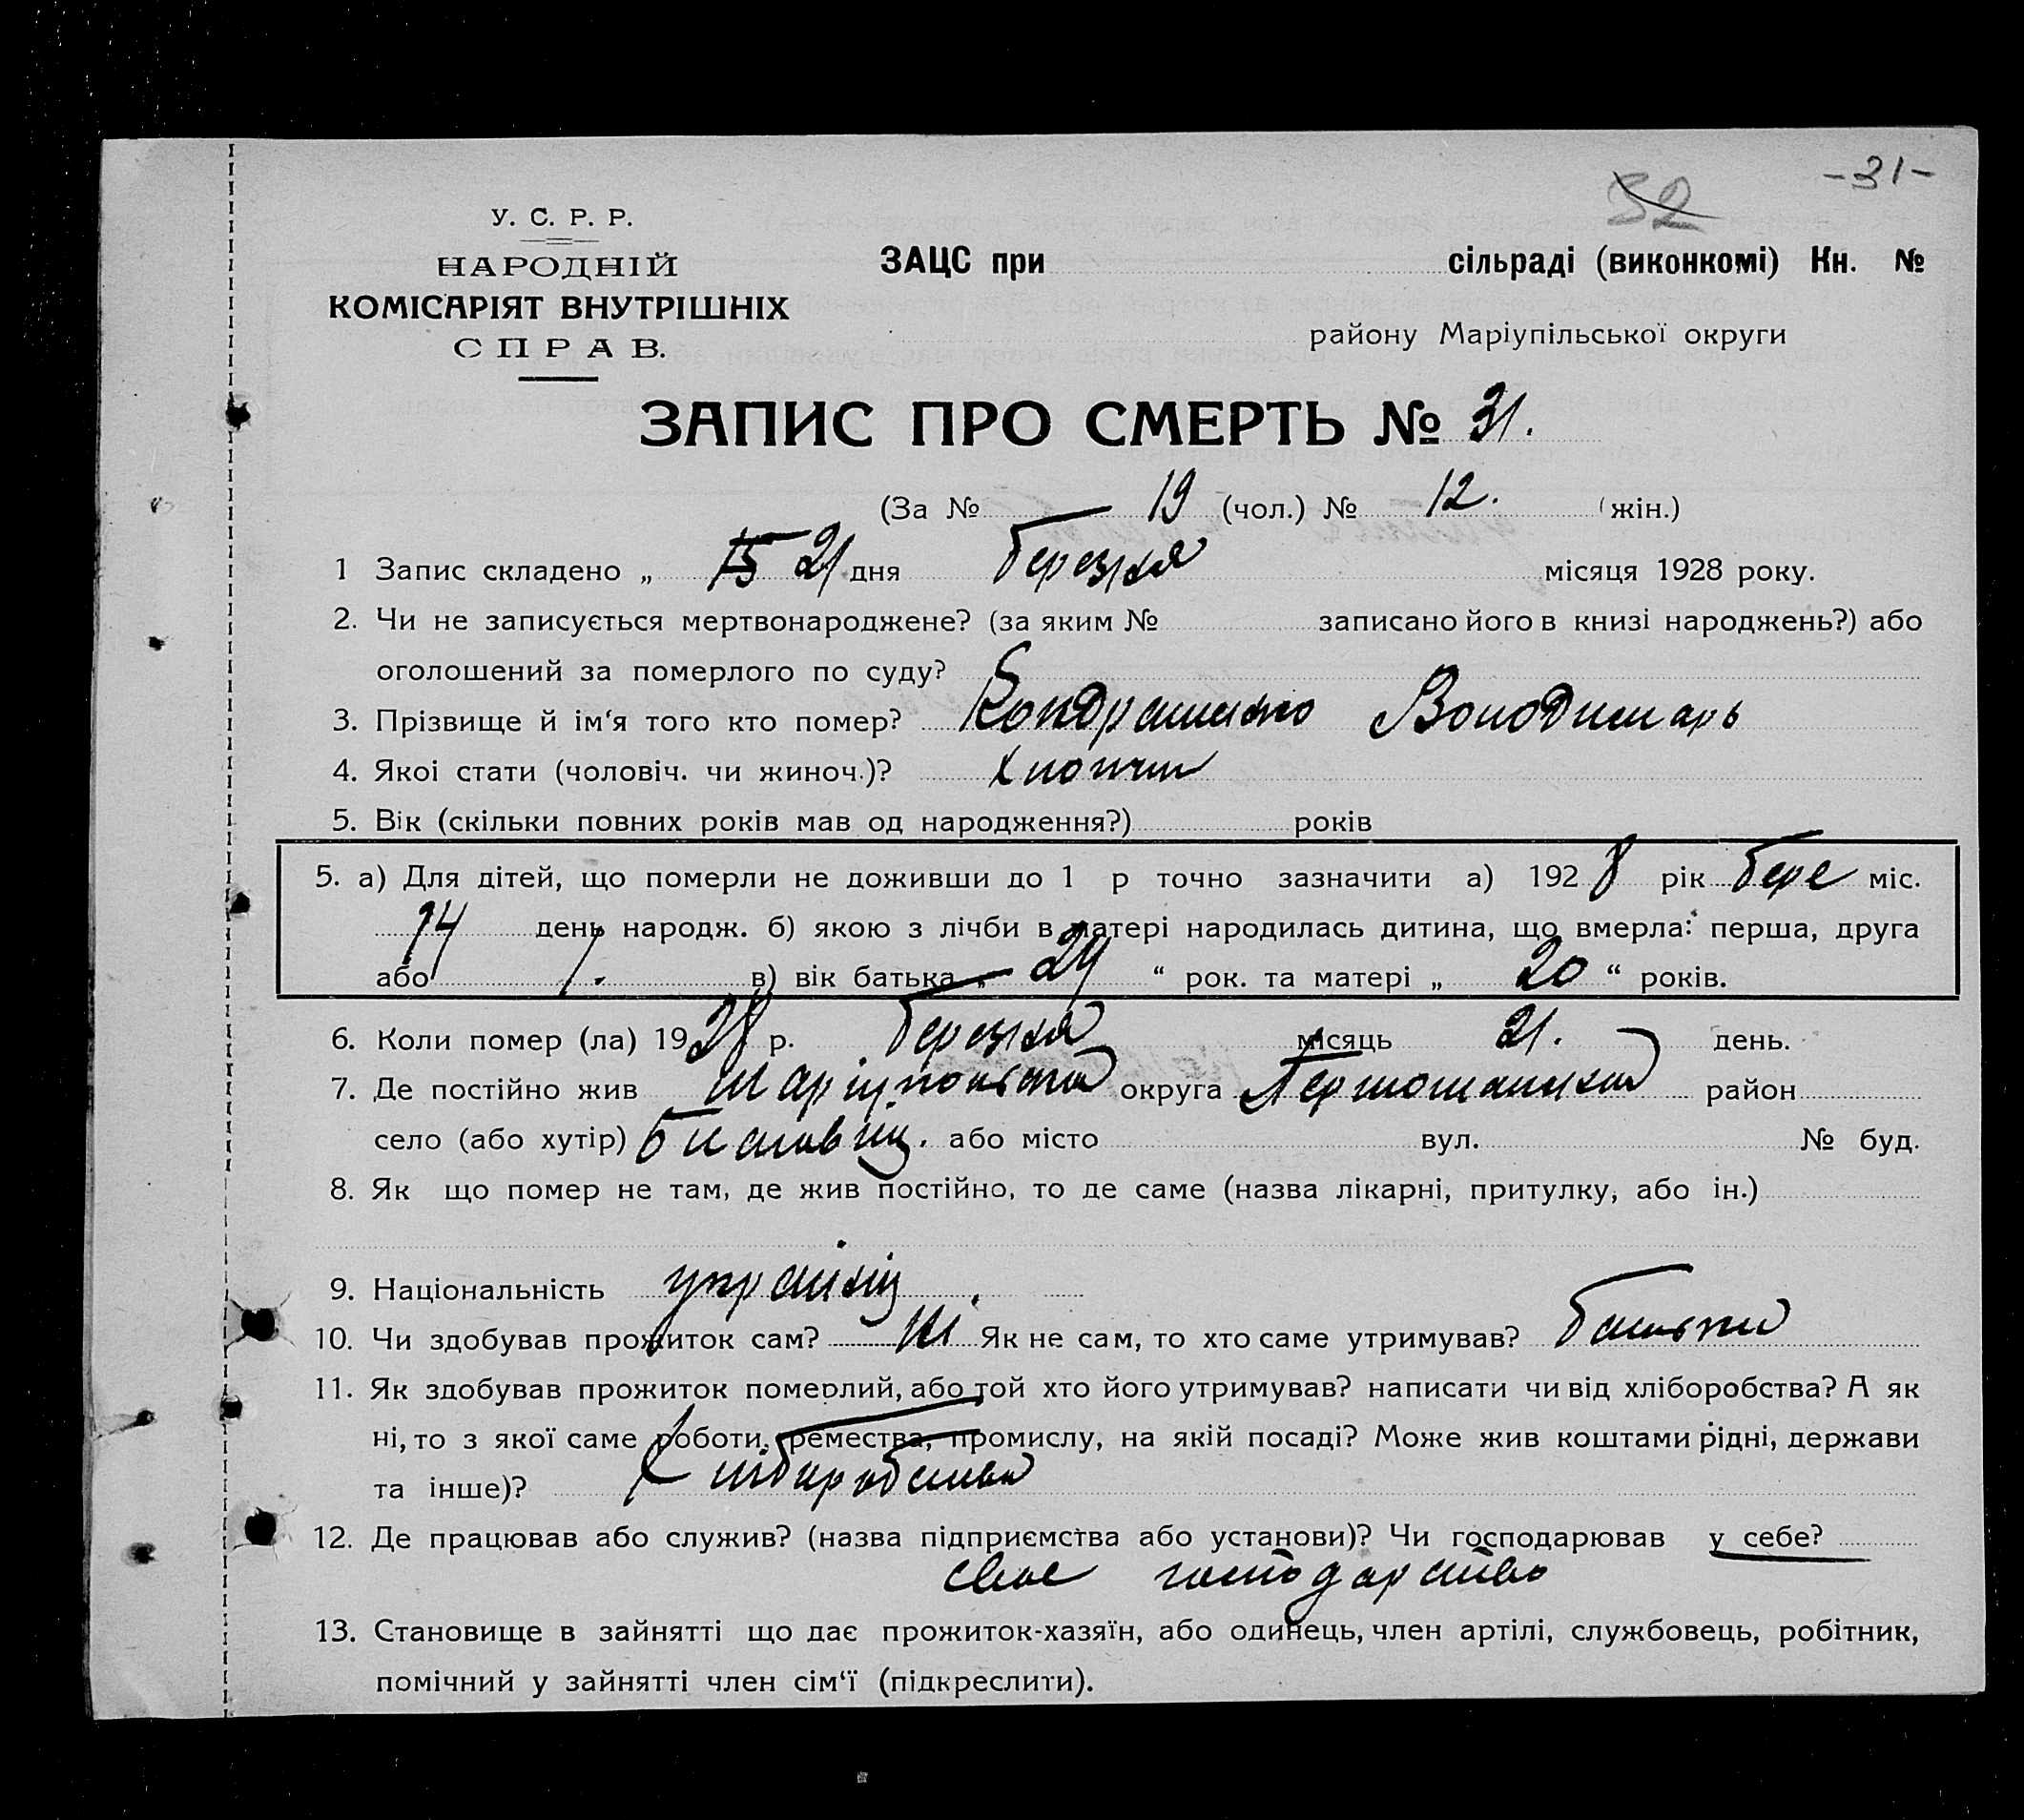 -31-
32
У. С. Р. Р.
НАРОДНІЙ
КОМІСАРІЯТ ВНУТРІШНІХ
СПРАВ.
ЗАЦС при сільраді (виконкомі) Кн. №
району Маріупільської округи
ЗАПИС ПРО СМЕРТЬ № 31.
(За № 19 (чол.) № 12. (жін.)
1 Запис складено „ 15 21 дня березня місяця 1928 року.
2. Чи не записується мертвонароджене? (за яким № записано його в книзі народжень?) або
оголошений за померлого по суду?
3. Прізвище й ім‘я того кто помер? Володимарь
4. Якоі стати (чоловіч. чи жиноч.)? хлопчи
5. Вік (скільки повних років мав од народження?) років
5. а) Для дітей, що померли не доживши до 1 р точно зазначити а) 1928 рік бере міс.
14 день народж. б) якою з лічби в матері народилась дитина, що вмерла: перша, друга
або 1. в) вік батька „ 24 “ рок. та матері „ 20 “ років.
6. Коли помер (ла) 1928 р. березня місяць 21. день.
7. Де постійно жив Маріупольска округа район
село (або хутір) або місто вул. № буд.
8. Як що помер не там, де жив постійно, то де саме (назва лікарні, притулку, або ін.)
9. Національність україніц.
10. Чи здобував прожиток сам? ні Як не сам, то хто саме утримував? батьки
11. Як здобував прожиток померлий, або той хто його утримував? написати чи від хліборобства? А як
ні, то з якої саме роботи, ремества, промислу, на якій посаді? Може жив коштами рідні, держави
та інше)? Хліборобства
12. Де працював або служив? (назва підприємства або установи)? Чи господарював у себе?
свое господарство
13. Становище в зайнятті що дає прожиток-хазяїн, або одинець, член артілі, службовець, робітник,
помічний у зайнятті член сім‘ї (підкреслити).